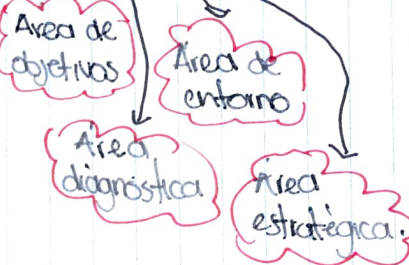 Area de
objetivos
Área de
entorno
Área
diagnóstica
Área
estratégica.